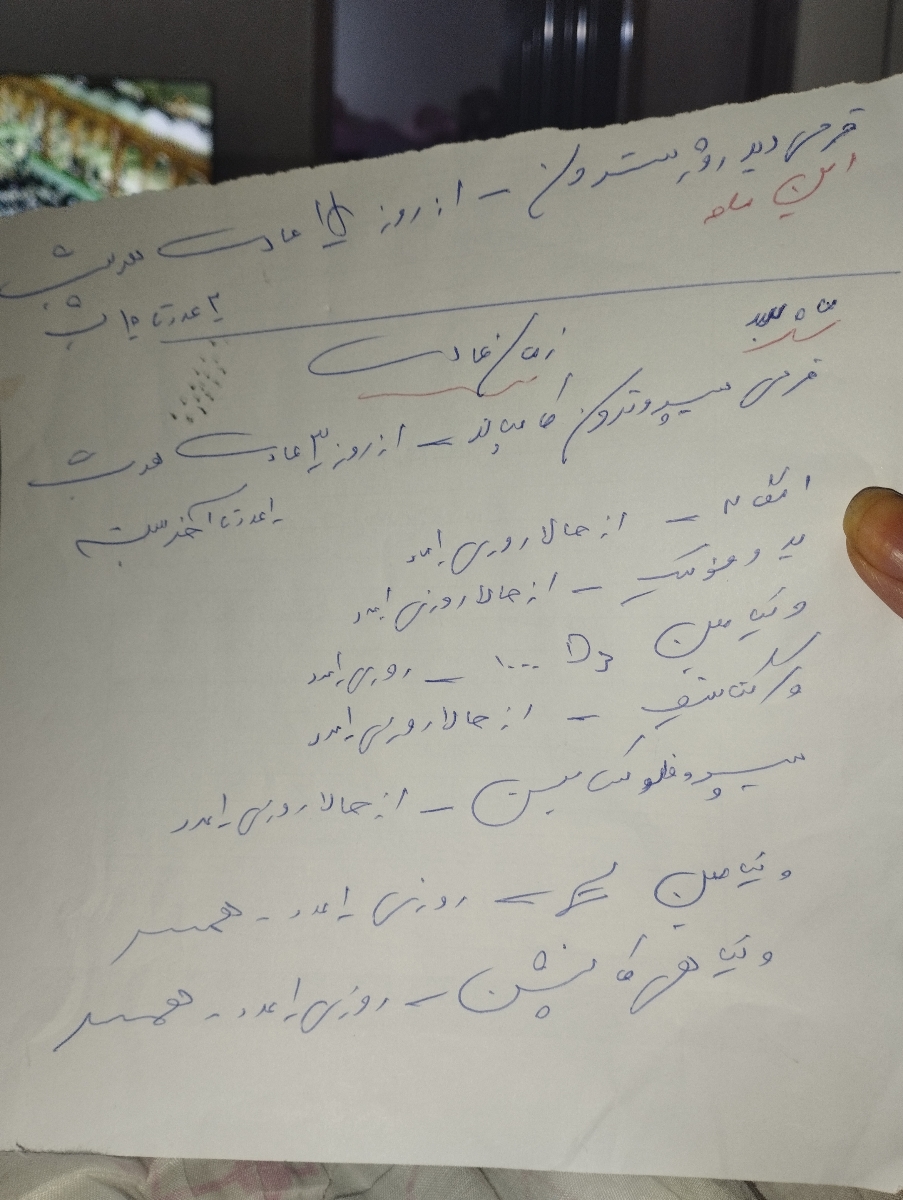 قرص دیدروژسترون – از روز ۱۵ عادت هر شب
این ماه
۲ عدد تا ۱۰ شب
ماه بعد
زمان عادت
قرص سیپروترون کامپاند – از روز ۳ عادت هر شب
۱ عدد تا آخر بسته
امگا ۳ – از حالا روزی ۱ عدد
از حالا روزی ۱ عدد
ویتامین D3 ۱۰۰۰ – روزی ۱ عدد
– از حالا روزی ۱ عدد
– از حالا روزی ۱ عدد
ویتامین – روزی ۱ عدد – همسر
ویتاهل فا – روزی ۱ عدد – همسر